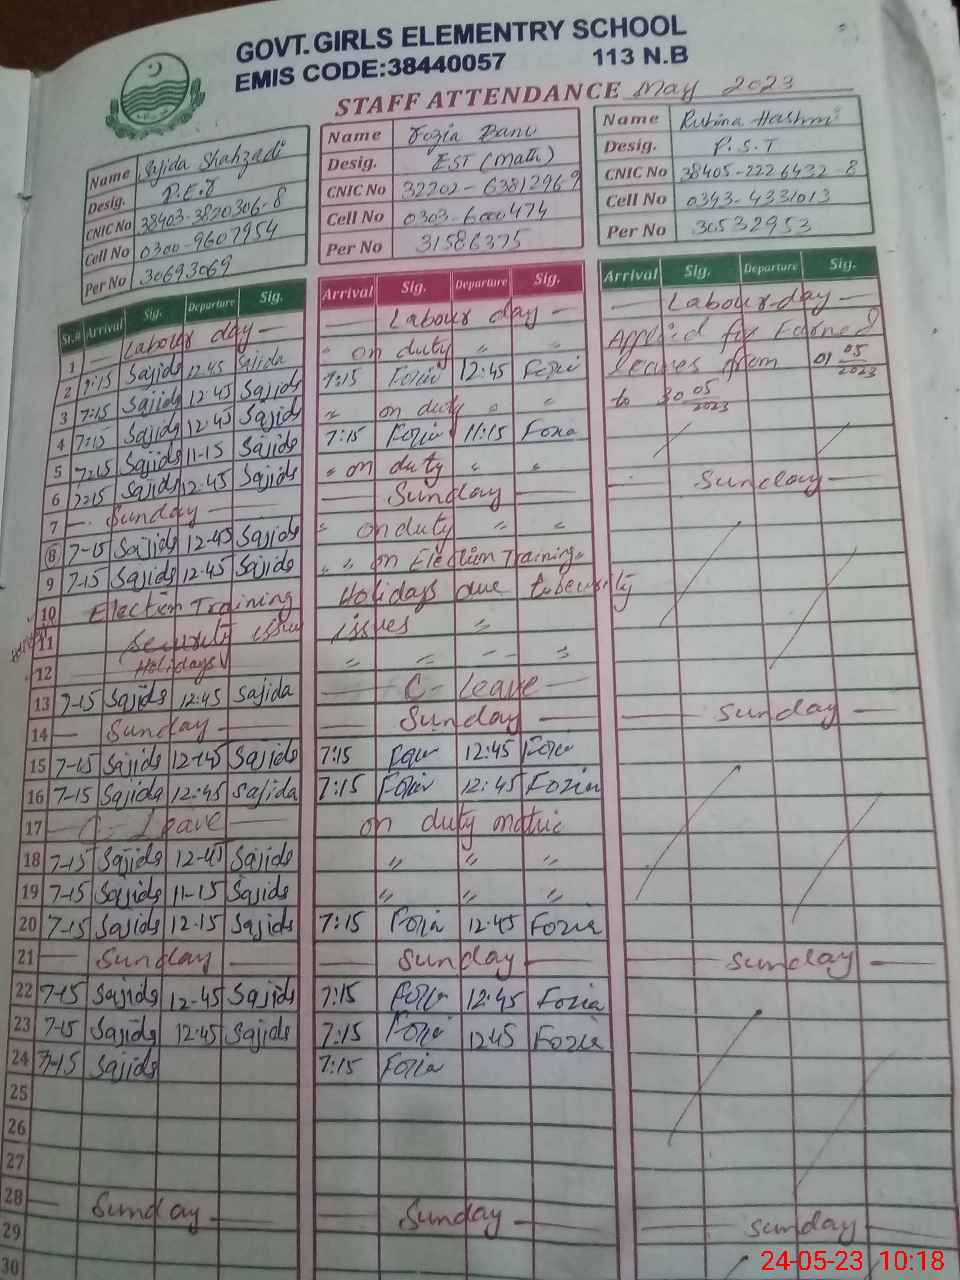 GOVT. GIRLS ELEMENTRY SCHOOL
EMIS CODE:38440057 113 N.B
STAFF ATTENDANCE May 2023
Name Sajida Shahzadi
Desig. P.E.T
CNIC No 38403-3820306-8
Cell No 0300-9607954
Per No 30693069
Name Fozia Bano
Desig. EST (math)
CNIC No 32202-6381296-9
Cell No 0303-6000474
Per No 31586375
Name Rubina Hashmi
Desig. P.S.T
CNIC No 38405-2226432-8
Cell No 0343-4331013
Per No 30532953
Sr.# Arrival Sig. Departure Sig. Arrival Sig. Departure Sig. Arrival Sig. Departure Sig.
1 — Labour day — — Labour day — — Labour day —
2 7:15 Sajida 12:45 Sajida " on duty " " Applied for Earned
3 7:15 Sajida 12-45 Sajida 7:15 Fozia 12:45 Fozia leaves from 01 05/2023
4 7:15 Sajida 12-45 Sajida " on duty " " to 30 05/2023
5 7:15 Sajida 11-15 Sajida 7:15 Fozia 11:15 Fozia
6 7:15 Sajida 12-45 Sajida " on duty " "
7 — Sunday — — Sunday — Sunday —
8 7-15 Sajida 12-45 Sajida " on duty " "
9 7-15 Sajida 12-45 Sajida " " on Election Training "
10 Election Training Holidays due to security
11 Security issue issues "
12 Holidays " " - - "
13 7-15 Sajida 12:45 Sajida — C- Leave —
14 — Sunday — — Sunday — — Sunday —
15 7-15 Sajida 12-45 Sajida 7:15 Fozia 12:45 Fozia
16 7-15 Sajida 12:45 Sajida 7:15 Fozia 12:45 Fozia
17 — C- Leave — on duty matric
18 7-15 Sajida 12-45 Sajida " " "
19 7-15 Sajida 11-15 Sajida " " "
20 7-15 Sajida 12-15 Sajida 7:15 Fozia 12:45 Fozia
21 — Sunday — — Sunday — — Sunday —
22 7-15 Sajida 12-45 Sajida 7:15 Fozia 12:45 Fozia
23 7-15 Sajida 12:45 Sajida 7:15 Fozia 12:45 Fozia
24 7-15 Sajida 7:15 Fozia
25
26
27
28 — Sunday — — Sunday — — Sunday —
29
30
24-05-23 10:18